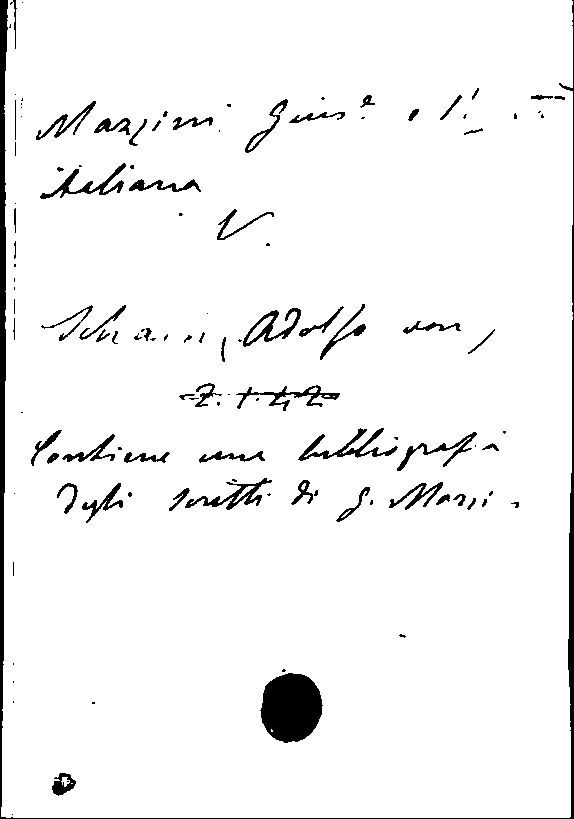 Mazzini Gius.e e l'
italiana
V.
Adolfo von,
Z. 1. 42
Contiene una bibliografia
degli scritti di G. Mazzi